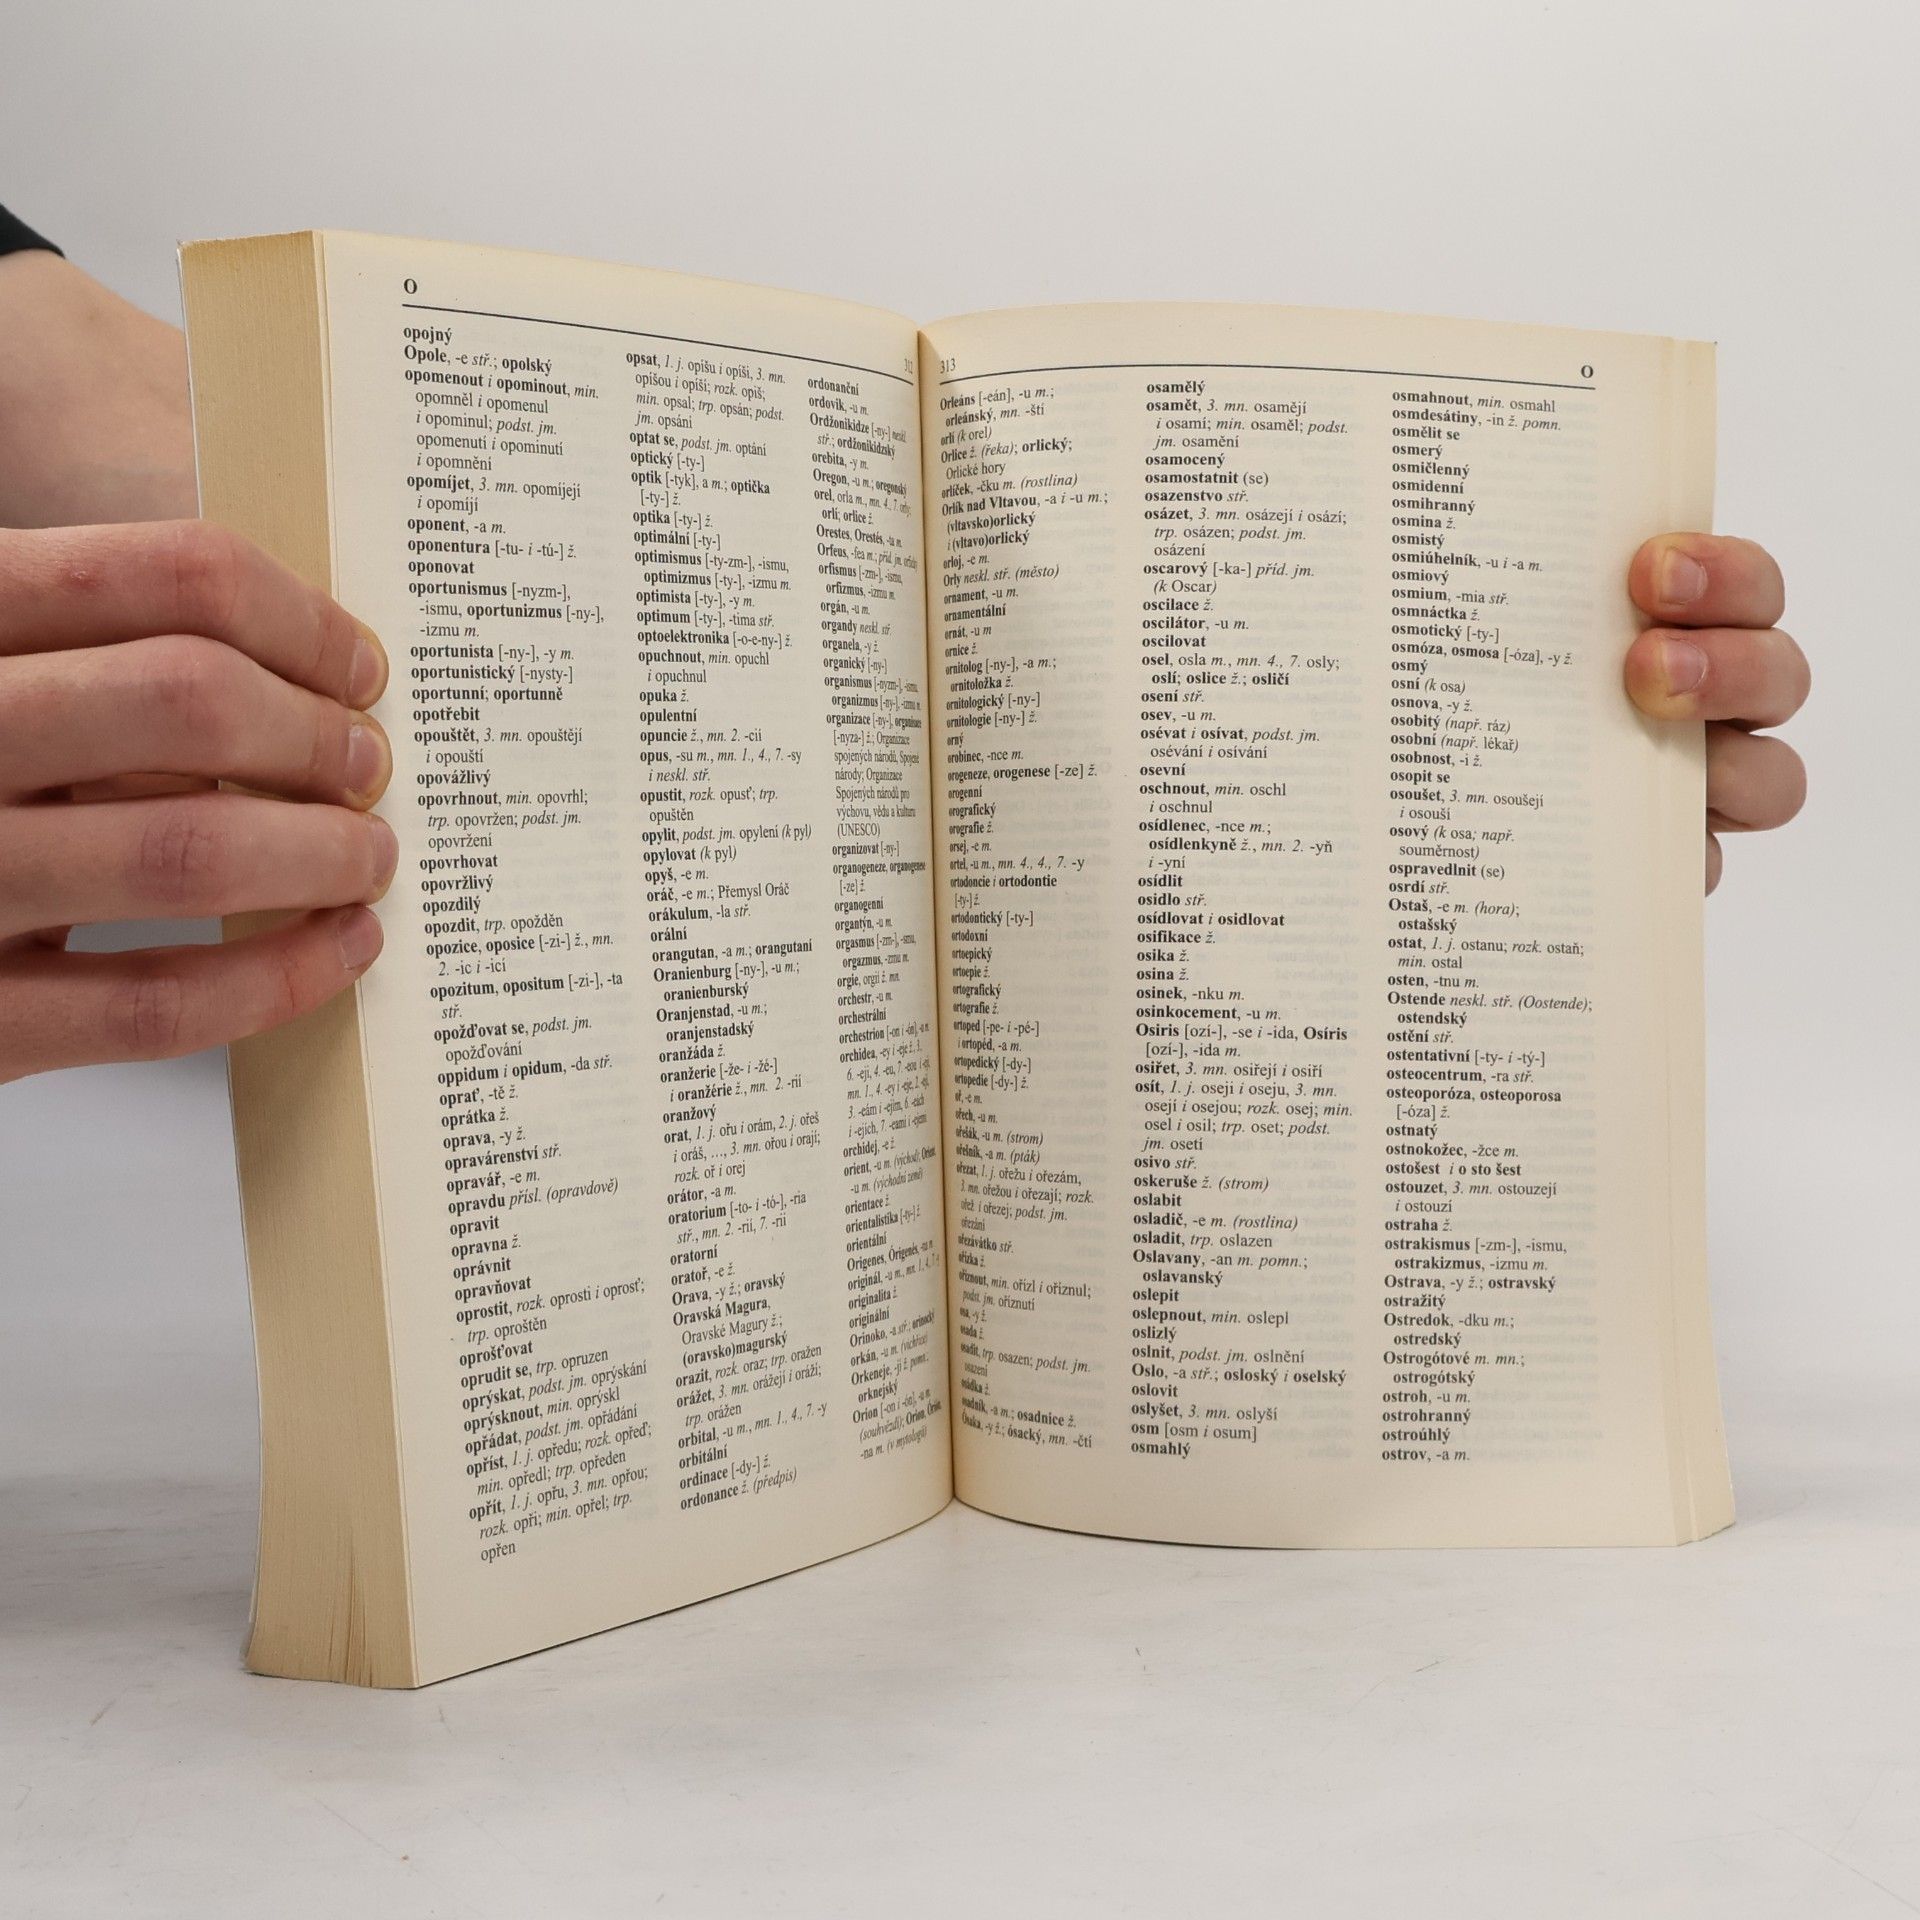 O
312
opojný
Opole, -e stř.; opolský
opomenout i opominout, min.
opomněl i opomenul
i opominul; podst. jm.
opomenutí i opominutí
i opomnění
opomíjet, 3. mn. opomíjejí
i opomíjí
oponent, -a m.
oponentura [-tu- i -tú-] ž.
oponovat
oportunismus [-nyzm-],
-ismu, oportunizmus [-ny-],
-izmu m.
oportunista [-ny-], -y m.
oportunistický [-nysty-]
oportunní; oportunně
opotřebit
opouštět, 3. mn. opouštějí
i opouští
opovážlivý
opovrhnout, min. opovrhl;
trp. opovržen; podst. jm.
opovržení
opovrhovat
opovržlivý
opozdilý
opozdit, trp. opožděn
opozice, oposice [-zi-] ž., mn.
2. -ic i -icí
opozitum, opositum [-zi-], -ta
stř.
opožďovat se, podst. jm.
opožďování
oppidum i opidum, -da stř.
oprať, -tě ž.
oprátka ž.
oprava, -y ž.
opravárenství stř.
opravář, -e m.
opravdu přísl. (opravdově)
opravit
opravna ž.
oprávnit
opravňovat
oprostit, rozk. oprosti i oprosť;
trp. oproštěn
oprošťovat
oprudit se, trp. opruzen
oprýskat, podst. jm. oprýskání
oprýsknout, min. oprýskl
opřádat, podst. jm. opřádání
opříst, 1. j. opředu; rozk. opřeď;
min. opředl; trp. opředen
opřít, 1. j. opřu, 3. mn. opřou;
rozk. opři; min. opřel; trp.
opřen
opsat, 1. j. opíšu i opíši, 3. mn.
opíšou i opíší; rozk. opiš;
min. opsal; trp. opsán; podst.
jm. opsání
optat se, podst. jm. optání
optický [-ty-]
optik [-tyk], a m.; optička
[-ty-] ž.
optika [-ty-] ž.
optimální [-ty-]
optimismus [-ty-zm-], -ismu,
optimizmus [-ty-], -izmu m.
optimista [-ty-], -y m.
optimum [-ty-], -tima stř.
optoelektronika [-o-e-ny-] ž.
opuchnout, min. opuchl
i opuchnul
opuka ž.
opulentní
opuncie ž., mn. 2. -cií
opus, -su m., mn. 1., 4., 7. -sy
i neskl. stř.
opustit, rozk. opusť; trp.
opuštěn
opylit, podst. jm. opylení (k pyl)
opylovat (k pyl)
opyš, -e m.
oráč, -e m.; Přemysl Oráč
orákulum, -la stř.
orální
orangutan, -a m.; orangutaní
Oranienburg [-ny-], -u m.;
oranienburský
Oranjenstad, -u m.;
oranjenstadský
oranžáda ž.
oranžerie [-že- i -žé-]
i oranžérie ž., mn. 2. -rií
oranžový
orat, 1. j. ořu i orám, 2. j. ořeš
i oráš, ..., 3. mn. ořou i orají;
rozk. oř i orej
orátor, -a m.
oratorium [-to- i -tó-], -ria
stř., mn. 2. -rií, 7. -rii
oratorní
oratoř, -e ž.
Orava, -y ž.; oravský
Oravská Magura,
Oravské Magury ž.;
(oravsko)magurský
orazit, rozk. oraz; trp. oražen
orážet, 3. mn. orážejí i oráží;
trp. orážen
orbital, -u m., mn. 1., 4., 7. -y
orbitální
ordinace [-dy-] ž.
ordonance ž. (předpis)
ordonanční
ordovik, -u m.
Ordžonikidze [-ny-] neskl.
stř.; ordžonikidzský
orebita, -y m.
Oregon, -u m.; oregonský
orel, orla m., mn. 4., 7. orly;
orlí; orlice ž.
Orestes, Orestés, -ta m.
Orfeus, -fea m.; příd. jm. orfický
orfismus [-zm-], -ismu,
orfizmus, -izmu m.
orgán, -u m.
organdy neskl. stř.
organela, -y ž.
organický [-ny-]
organismus [-nyzm-], -ismu,
organizmus [-ny-], -izmu m.
organizace [-ny-], organisace
[-nyza-] ž.; Organizace
spojených národů, Spojené
národy; Organizace
Spojených národů pro
výchovu, vědu a kulturu
(UNESCO)
organizovat [-ny-]
organogeneze, organogenese
[-ze] ž.
organogenní
organtýn, -u m.
orgasmus [-zm-], -smu,
orgazmus, -zmu m.
orgie, orgií ž. mn.
orchestr, -u m.
orchestrální
orchestrion [-on i -ón], -u m.
orchidea, -ey i -eje ž., 3.
6. -eji, 4. -eu, 7. -eou i -ejí,
mn. 1., 4. -ey i -eje, 2. -ejí,
3. -eám i -ejím, 6. -eách
i -ejích, 7. -eami i -ejemi
orchidej, -e ž.
orient, -u m. (východ); Orient,
-u m. (východní země)
orientace ž.
orientalistika [-ty-] ž.
orientální
Origenes, Órigenés, -na m.
originál, -u m., mn. 1., 4., 7. -y
originalita ž.
originální
Orinoko, -a stř.; orinocký
orkán, -u m. (vichřice)
Orkneje, -jí ž. pomn.;
orknejský
Orion [-on i -ón], -u m.
(souhvězdí); Orion, Órión,
-na m. (v mytologii)
313
O
Orleáns [-eán], -u m.;
orleánský, mn. -ští
orlí (k orel)
Orlice ž. (řeka); orlický;
Orlické hory
orlíček, -čku m. (rostlina)
Orlík nad Vltavou, -a i -u m.;
(vltavsko)orlický
i (vltavo)orlický
orloj, -e m.
Orly neskl. stř. (město)
ornament, -u m.
ornamentální
ornát, -u m
ornice ž.
ornitolog [-ny-], -a m.;
ornitoložka ž.
ornitologický [-ny-]
ornitologie [-ny-] ž.
orný
orobinec, -nce m.
orogeneze, orogenese [-ze] ž.
orogenní
orografický
orografie ž.
orsej, -e m.
ortel, -u m., mn. 4., 4., 7. -y
ortodoncie i ortodontie
[-ty-] ž.
ortodontický [-ty-]
ortodoxní
ortoepický
ortoepie ž.
ortografický
ortografie ž.
ortoped [-pe- i -pé-]
i ortopéd, -a m.
ortopedický [-dy-]
ortopedie [-dy-] ž.
oř, -e m.
ořech, -u m.
ořešák, -u m. (strom)
ořešník, -a m. (pták)
ořezat, 1. j. ořežu i ořezám,
3. mn. ořežou i ořezají; rozk.
ořež i ořezej; podst. jm.
ořezání
ořezávátko stř.
ořízka ž.
oříznout, min. ořízl i oříznul;
podst. jm. oříznutí
osa, -y ž.
osada ž.
osadit, trp. osazen; podst. jm.
osazení
osádka ž.
osadník, -a m.; osadnice ž.
Ósaka, -y ž.; ósacký, mn. -čtí
osamělý
osamět, 3. mn. osamějí
i osamí; min. osaměl; podst.
jm. osamění
osamocený
osamostatnit (se)
osazenstvo stř.
osázet, 3. mn. osázejí i osází;
trp. osázen; podst. jm.
osázení
oscarový [-ka-] příd. jm.
(k Oscar)
oscilace ž.
oscilátor, -u m.
oscilovat
osel, osla m., mn. 4., 7. osly;
oslí; oslice ž.; osličí
osení stř.
osev, -u m.
osévat i osívat, podst. jm.
osévání i osívání
osevní
oschnout, min. oschl
i oschnul
osídlenec, -nce m.;
osídlenkyně ž., mn. 2. -yň
i -yní
osídlit
osidlo stř.
osídlovat i osidlovat
osifikace ž.
osika ž.
osina ž.
osinek, -nku m.
osinkocement, -u m.
Osiris [ozí-], -se i -ida, Osíris
[ozí-], -ida m.
osiřet, 3. mn. osiřejí i osiří
osít, 1. j. oseji i oseju, 3. mn.
osejí i osejou; rozk. osej; min.
osel i osil; trp. oset; podst.
jm. osetí
osivo stř.
oskeruše ž. (strom)
oslabit
osladič, -e m. (rostlina)
osladit, trp. oslazen
Oslavany, -an m. pomn.;
oslavanský
oslepit
oslepnout, min. oslepl
oslizlý
oslnit, podst. jm. oslnění
Oslo, -a stř.; osloský i oselský
oslovit
oslyšet, 3. mn. oslyší
osm [osm i osum]
osmahlý
osmahnout, min. osmahl
osmdesátiny, -in ž. pomn.
osmělit se
osmerý
osmičlenný
osmidenní
osmihranný
osmina ž.
osmistý
osmiúhelník, -u i -a m.
osmiový
osmium, -mia stř.
osmnáctka ž.
osmotický [-ty-]
osmóza, osmosa [-óza], -y ž.
osmý
osní (k osa)
osnova, -y ž.
osobitý (např. ráz)
osobní (např. lékař)
osobnost, -i ž.
osopit se
osoušet, 3. mn. osoušejí
i osouší
osový (k osa; např.
souměrnost)
ospravedlnit (se)
osrdí stř.
Ostaš, -e m. (hora);
ostašský
ostat, 1. j. ostanu; rozk. ostaň;
min. ostal
osten, -tnu m.
Ostende neskl. stř. (Oostende);
ostendský
ostění stř.
ostentativní [-ty- i -tý-]
osteocentrum, -ra stř.
osteoporóza, osteoporosa
[-óza] ž.
ostnatý
ostnokožec, -žce m.
ostošest i o sto šest
ostouzet, 3. mn. ostouzejí
i ostouzí
ostraha ž.
ostrakismus [-zm-], -ismu,
ostrakizmus, -izmu m.
Ostrava, -y ž.; ostravský
ostražitý
Ostredok, -dku m.;
ostredský
Ostrogótové m. mn.;
ostrogótský
ostroh, -u m.
ostrohranný
ostroúhlý
ostrov, -a m.